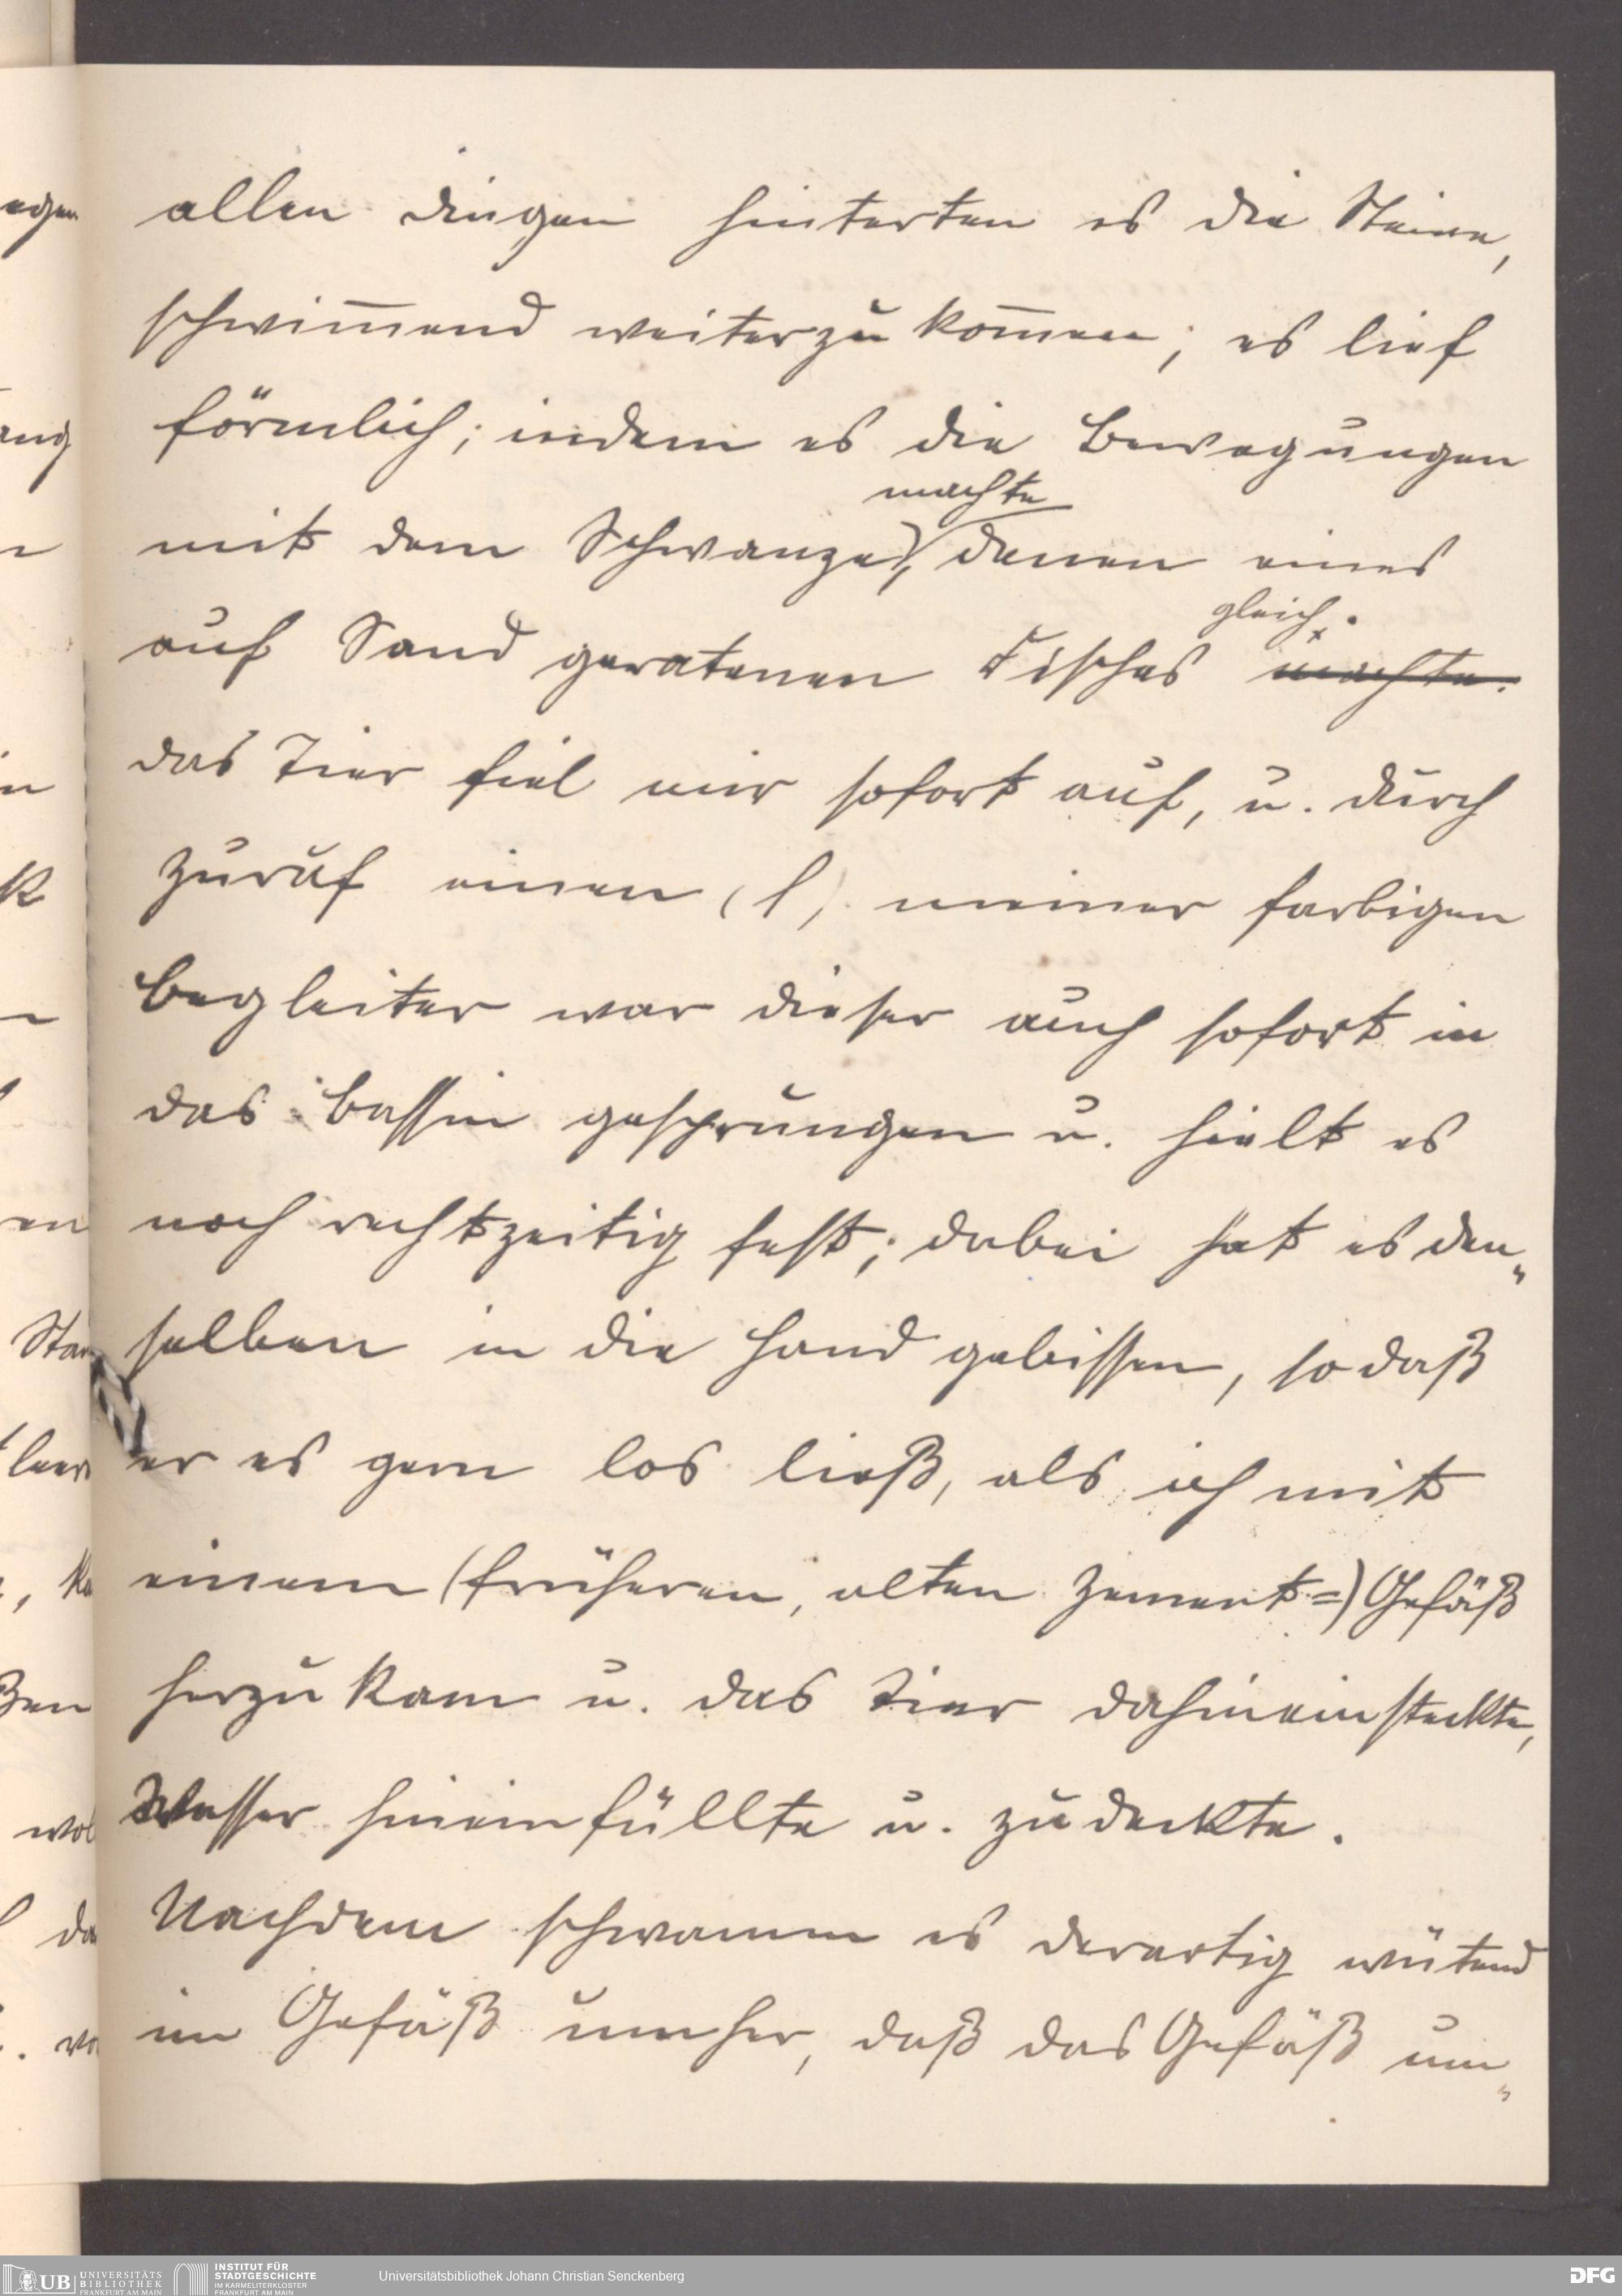 allen dingen hinterten es die Steine,
schwim̅end weiterzukom̅en; es lief
förmlich; indem es die Bewegungen
machte
mit dem Schwanze), denen eines
gleich.
auf Sand geratenen Fisches machte.
das Tier fiel mir sofort auf, u. durch
Zuruf einen (l) meiner farbigen
Begleiter war dieser auch sofort in
das Bassin gesprungen u. hielt es
noch rechtzeitig fest; dabei hat es den„
selben in die Hand gebissen, so daß
er es gern los ließ, als ich mit
einem (früheren, alten Zement=) Gefäß
herzukam u. das Tier dahineinsteckte,
Wasser hineinfüllte u. zudeckte.
Nachdem schwamm es derartig wütend
im Gefäß umher, daß das Gefäß um„
UB UNIVERSITÄTS BIBLIOTHEK FRANKFURT AM MAIN
INSTITUT FÜR STADTGESCHICHTE IM KARMELITERKLOSTER FRANKFURT AM MAIN
Universitätsbibliothek Johann Christian Senckenberg
DFG